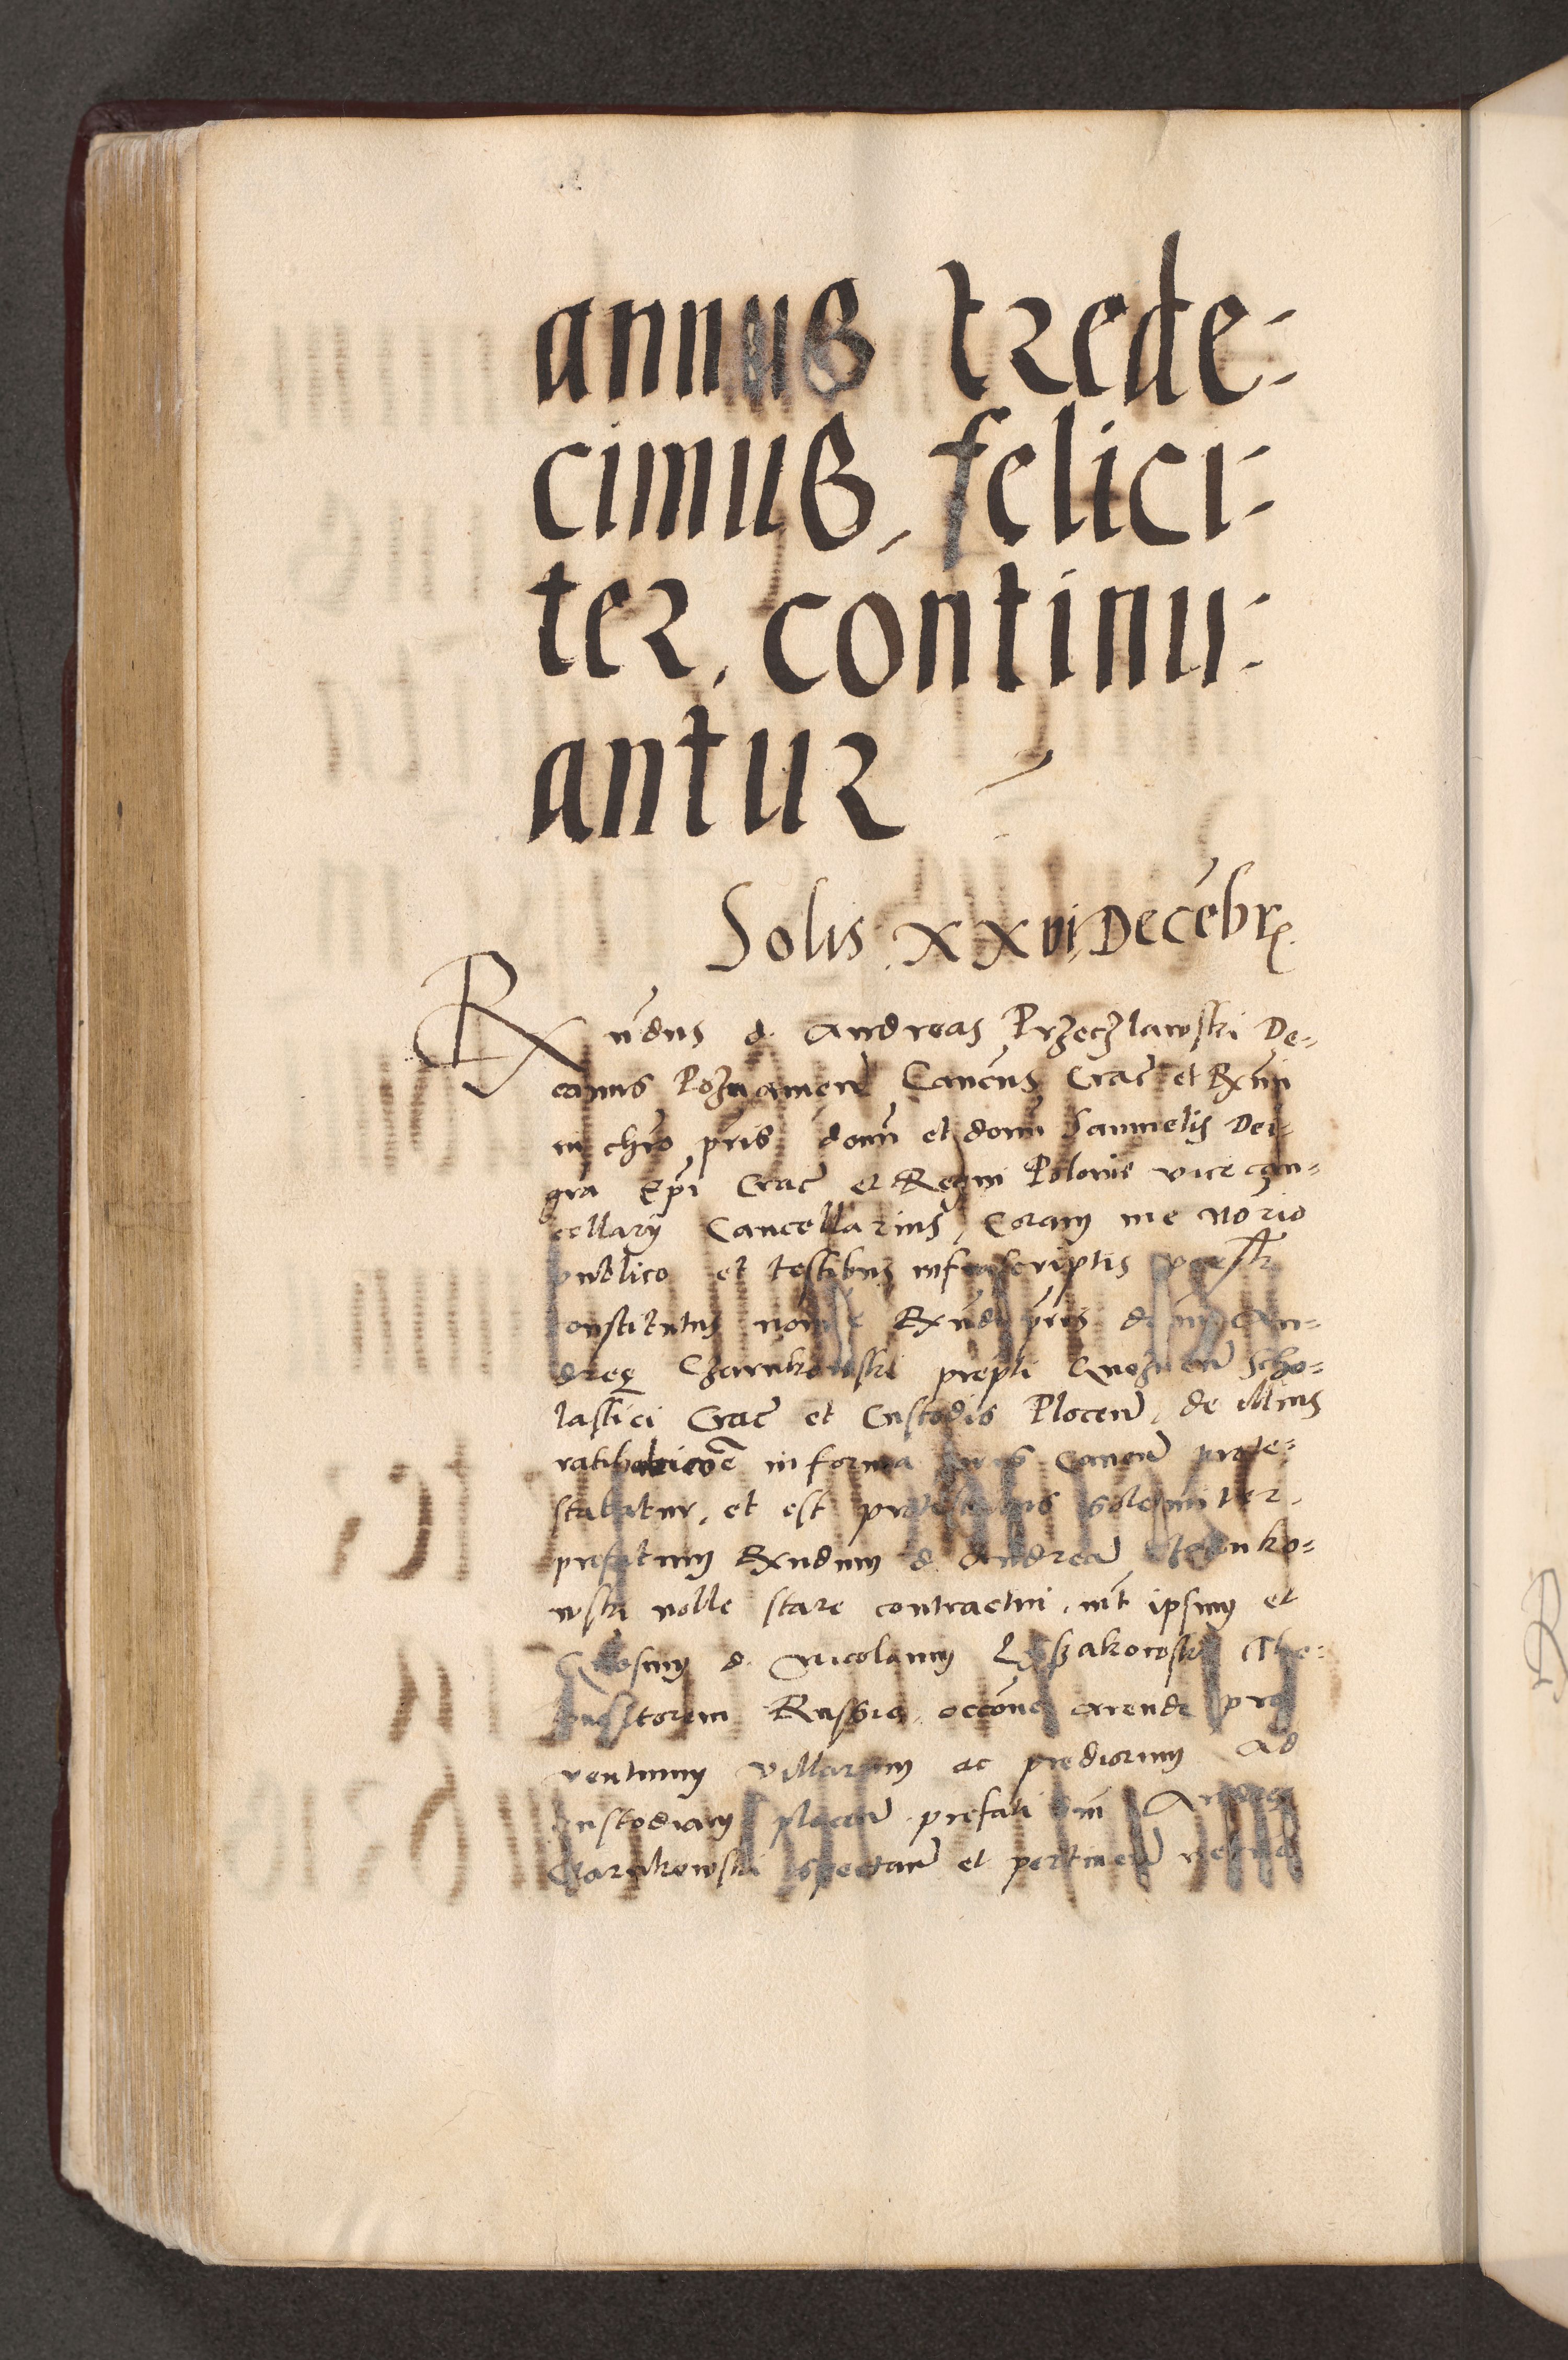 annus trede-
cimus, felici-
ter, continu-
antur
Solis XXVI Decēbr
Rx̄ndus d. Andreas Przeczlawski De-
canus Poznamen̄ Canc̄us Crac̄ et Rx̄mi
in chr̄o pr̄is domī et domī Samuelis Dei
gr̄a Ep̄i Crac̄ et Regni Polonie vicecan-
cellarij Cancellarius, Coram me no rio
publico et testibus infrascriptis
constitutus Rx̄ndi An-
dreę Czarnkowski prep̄ti Gneznen̄ Scho-
lastici Crac̄ et Custodis Plocen̄, de illius
in forma Canon̄ prote-
stabatur, et est protestatus solemniter,
prefatum Rx̄ndum d. Andreā Czarnko-
wski nolle stare contractui, int̄ ipsum et
d. Nicolaum
Russię, occōne arende pro-
ventuum villarum ac prediorum ad
custodiam plocen̄ prefati dn̄i Andreę
Czarnkowski spectan̄ et pertinen̄